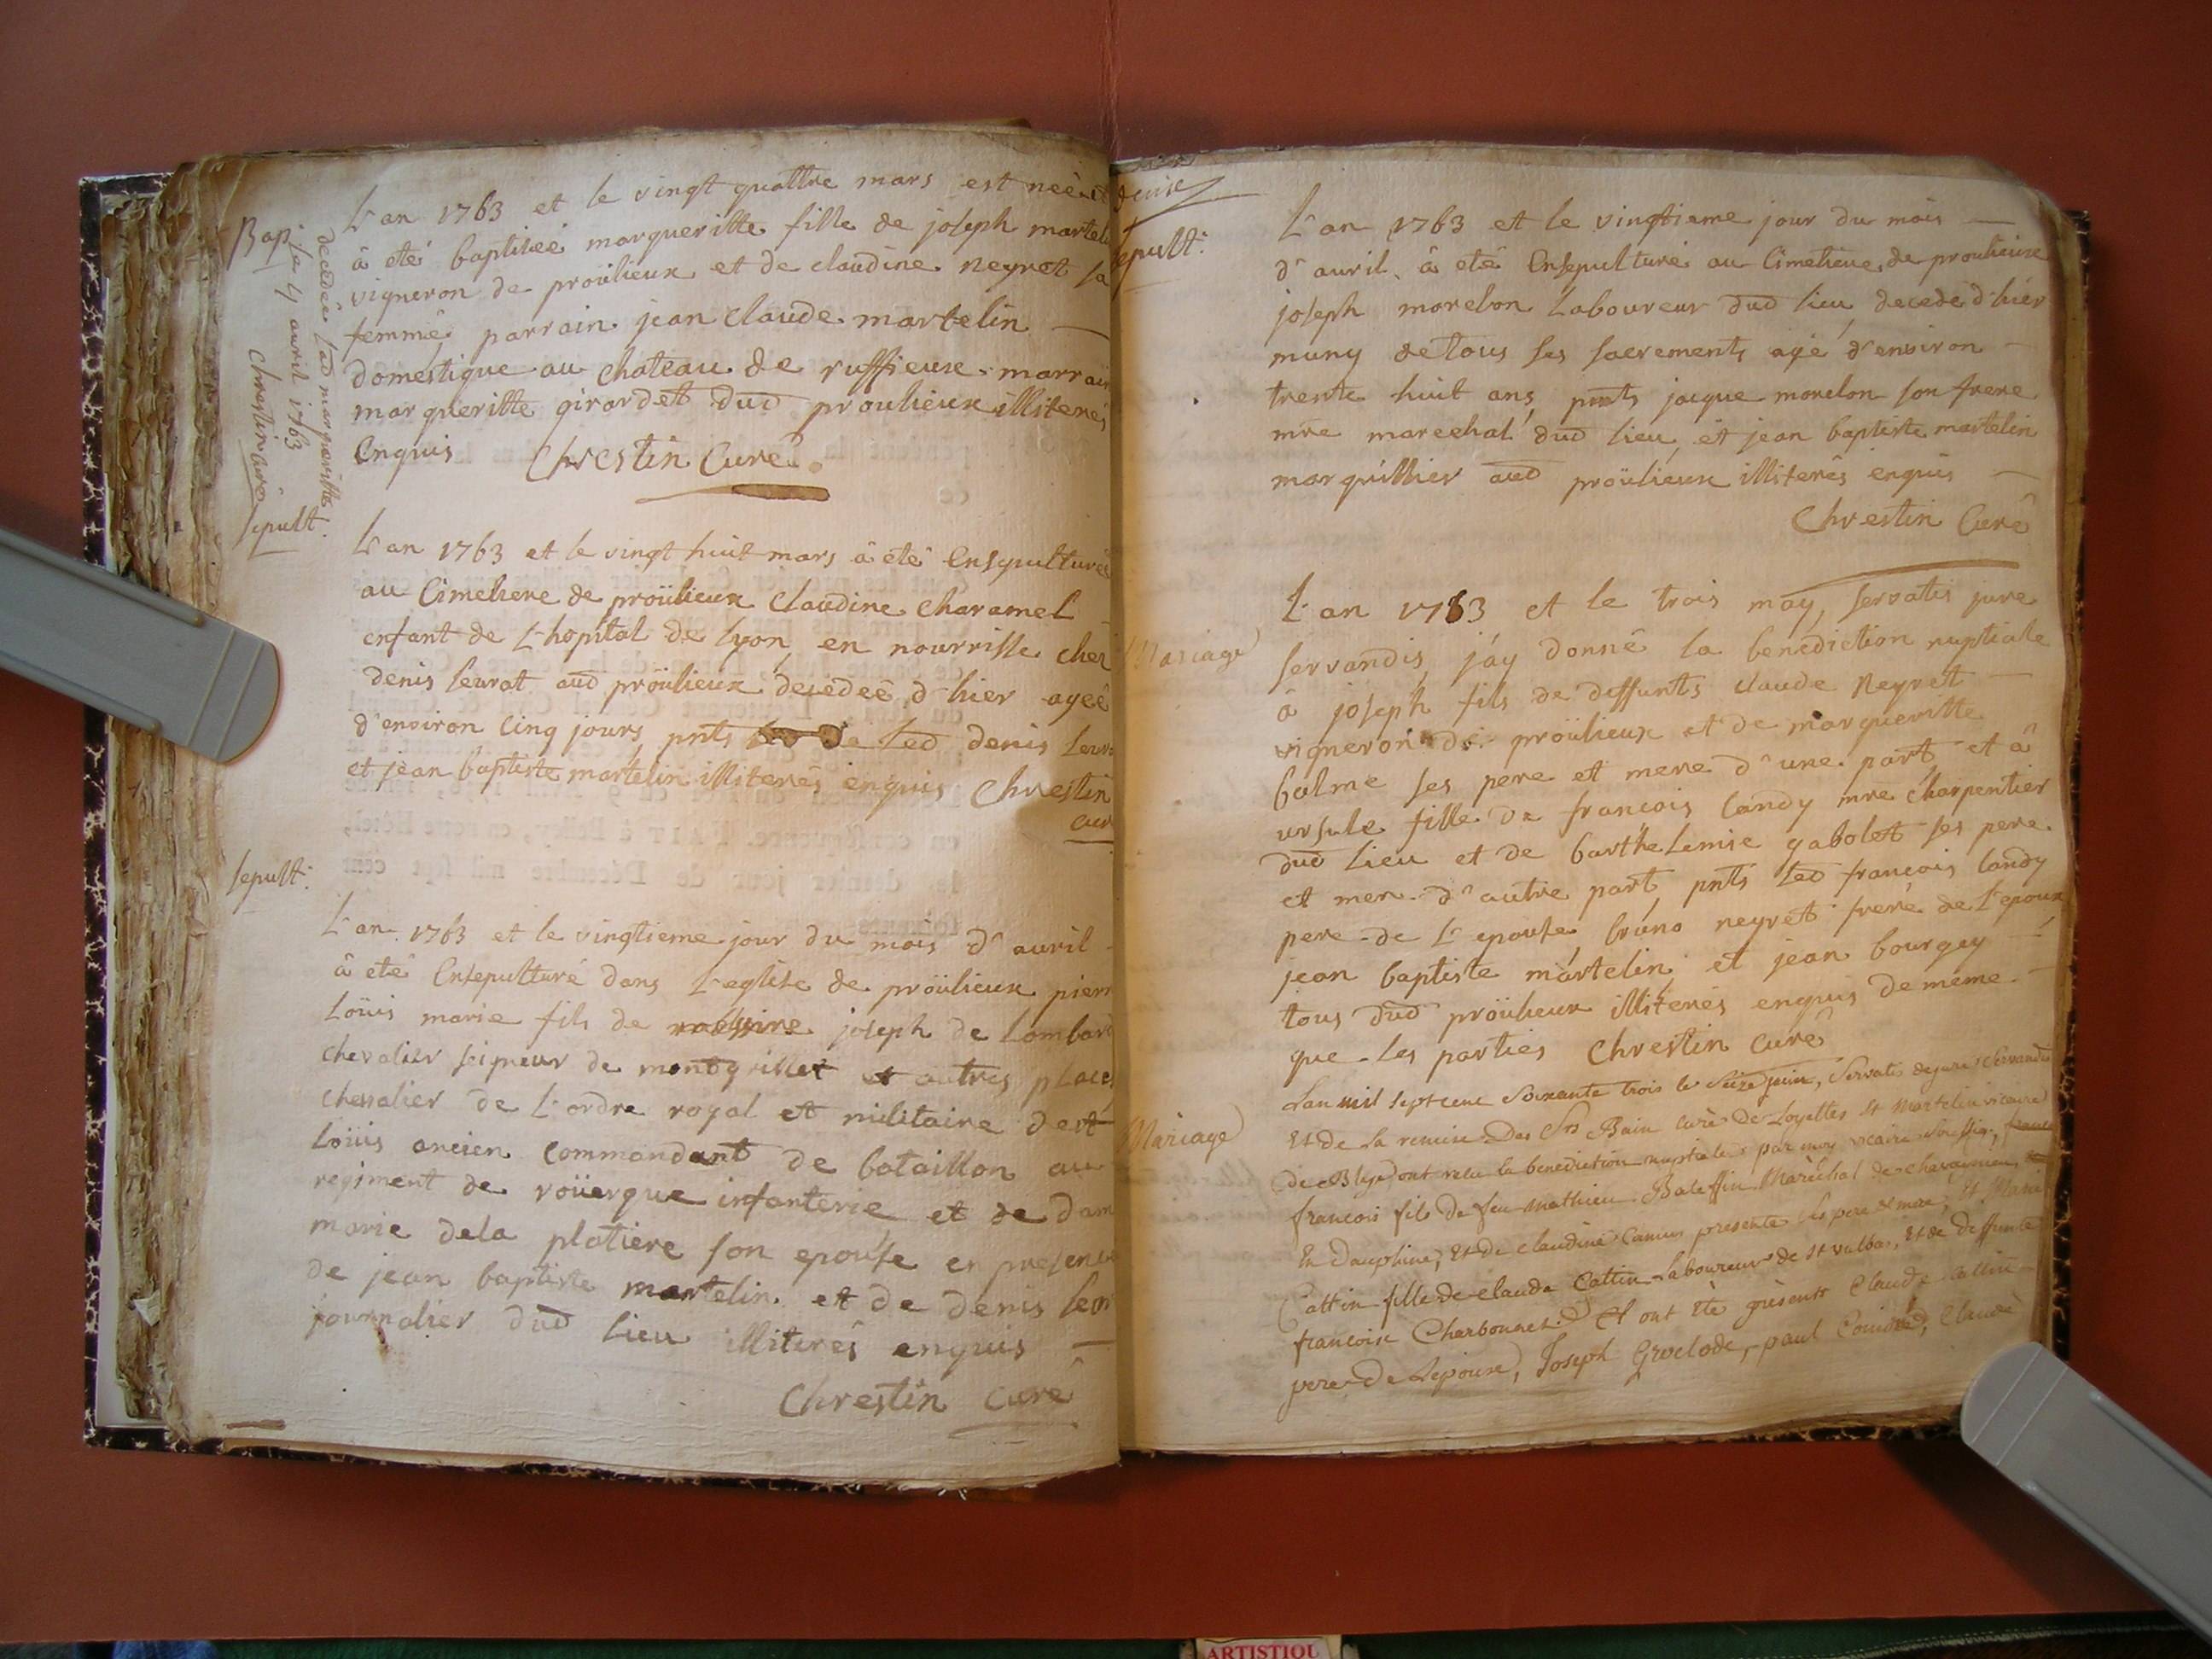 Bap.
decedeé Lad margueritte
le 4 avril 1763
Chrestin curé
L'an 1763 et le vingt quattre mars est neé et
à eté baptiseé margueritte fille de joseph martel
vigneron de proülieux et de claudine neyret sa
femme parrain jean claude martelin
domestique au chateau de ruffieux marrain
margueritte girardet dud proulieux illiterés
Enquis Chrestin Curé
sepult.
L'an 1763 et le vingt huit mars à eté Ensepulturé
au Cimetiere de proülieux Claudine Charamel
enfant de L'hopital de Lyon en nourrisse chez
denis seurat aud proülieux decedeé d'hier ageé
d'environ Cinq jours pnts led denis seura
et jean baptiste martelin illiterés enquis Chrestin
cur
sepult:
L'an 1763 et le vingtieme jour du mois d'avril
à eté Ensepulturé dans L'eglise de proülieux pierr
Loüis marie fils de messire joseph de Lombard
chevalier seigneur de montgrillet et autres places
chevalier de L'ordre royal et militaire de st
Loüis ancien commandant de bataillon au
regiment de roüergue infanterie et de dam
marie dela platiere son epouse en presence
de jean baptiste martelin et de denis seur
journalier dud lieu illiterés enquis
Chrestin Curé
sepult:
L'an 1763 et le vingtieme jour du mois
d'avril à eté Ensepulturé au Cimetiere de proulieux
joseph morelon Laboureur dud lieu decedé d'hier
muny de tous ses sacrements agé d'environ
trente huit ans pnts jacque morelon son frere
mre marechal dud lieu et jean baptiste martelin
marguillier aud proülieux illiterés enquis
Chrestin Curé
Mariage
L'an 1763 et le trois may, servatis jure
servandis j'ay donné la benediction nuptiale
à joseph fils de deffunts claude Neyret
vigneron de proülieux et de margueritte
balme ses pere et mere d'une part et à
ursule fille de francois Candy mre charpentier
dud Lieu et de barthelemie gabolet ses pere
et mere d'autre part, pnts led francois Candy
pere de L'epouse, bruno neyret frere de l'epoux
jean baptiste martelin et jean bourgey
tous dud proülieux illiterés enquis de meme
que les parties Chrestin curé
Mariage
Lan mil sept cent soixante trois le seize juin, servatis de jure servandis
Et de la remise Des Srs Bain curé De Loyettes et Martelin vicaire
de Blye ont recu la benediction nuptiale par moy vicaire soussigné,
francois fils de feu mathieu Balessin Marechal de chavanieu
En Dauphiné, Et de claudine Camus presente ses pere et mere, Et Marie
Cattin fille de claude Cattin Laboureur de st valba, Et de deffunte
francoise Charbonnet. Et ont été présent Claude Cattin
pere De Lepouse, Joseph Groclode, paul Couidred, Claude
ARTISTIQU